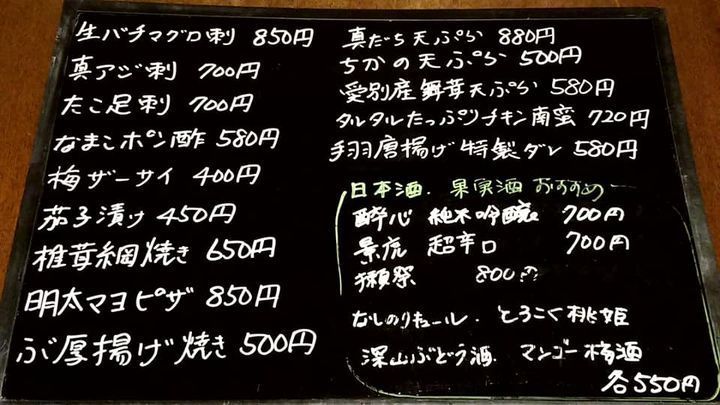 生バチマグロ刺 850円
真アジ刺 700円
たこ足刺 700円
なまこポン酢 580円
梅ザーサイ 400円
茄子漬け 450円
椎茸網焼き 650円
明太マヨピザ 850円
ぶ厚揚げ焼き 500円
真だち天ぷら 880円
ちかの天ぷら 500円
愛別産舞茸天ぷら 580円
タルタルたっぷりチキン南蛮 720円
手羽唐揚げ特製ダレ 580円
日本酒、果実酒 おすすめー
酔心 純米吟醸 700円
景虎 超辛口 700円
獺祭 800円
なしのリキュール、とろこく桃姫
深山ぶどう酒、マンゴー梅酒
各550円